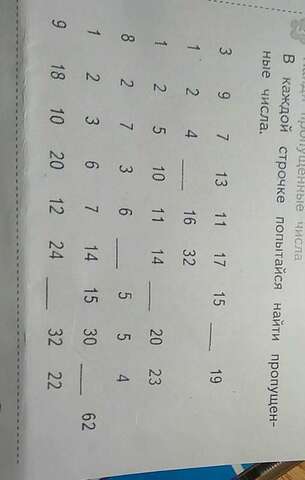 пропущенные числа
В каждой строчке попытайся найти пропущен-
ные числа.
3 9 7 13 11 17 15 __ 19
1 2 4 __ 16 32
1 2 5 10 11 14 __ 20 23
8 2 7 3 6 __ 5 5 4
1 2 3 6 7 14 15 30 __ 62
9 18 10 20 12 24 __ 32 22